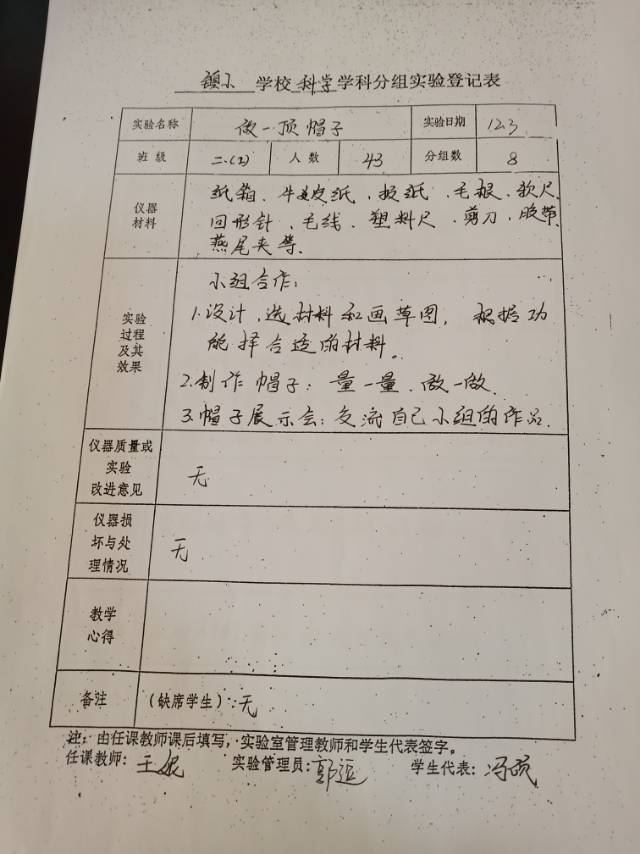 镇小 学校 科学 学科分组实验登记表
实验名称 做一顶帽子 实验日期 12.3
班 级 二.(2) 人 数 43 分组数 8
仪器 材料
纸箱、牛皮纸、报纸、毛根、软尺、
回形针、毛线、塑料尺、剪刀、胶带、
燕尾夹等.
实验 过程 及其 效果
小组合作:
1.设计,选材料和画草图, 根据功
能择合适的材料。
2.制作帽子:量一量、做一做.
3.帽子展示会:交流自己小组的作品.
仪器质量或 实验 改进意见
无
仪器损 坏与处 理情况
无
教学 心得
备注 (缺席学生):无
注:由任课教师课后填写,实验室管理教师和学生代表签字。
任课教师:王妮 实验管理员:郭 学生代表:冯